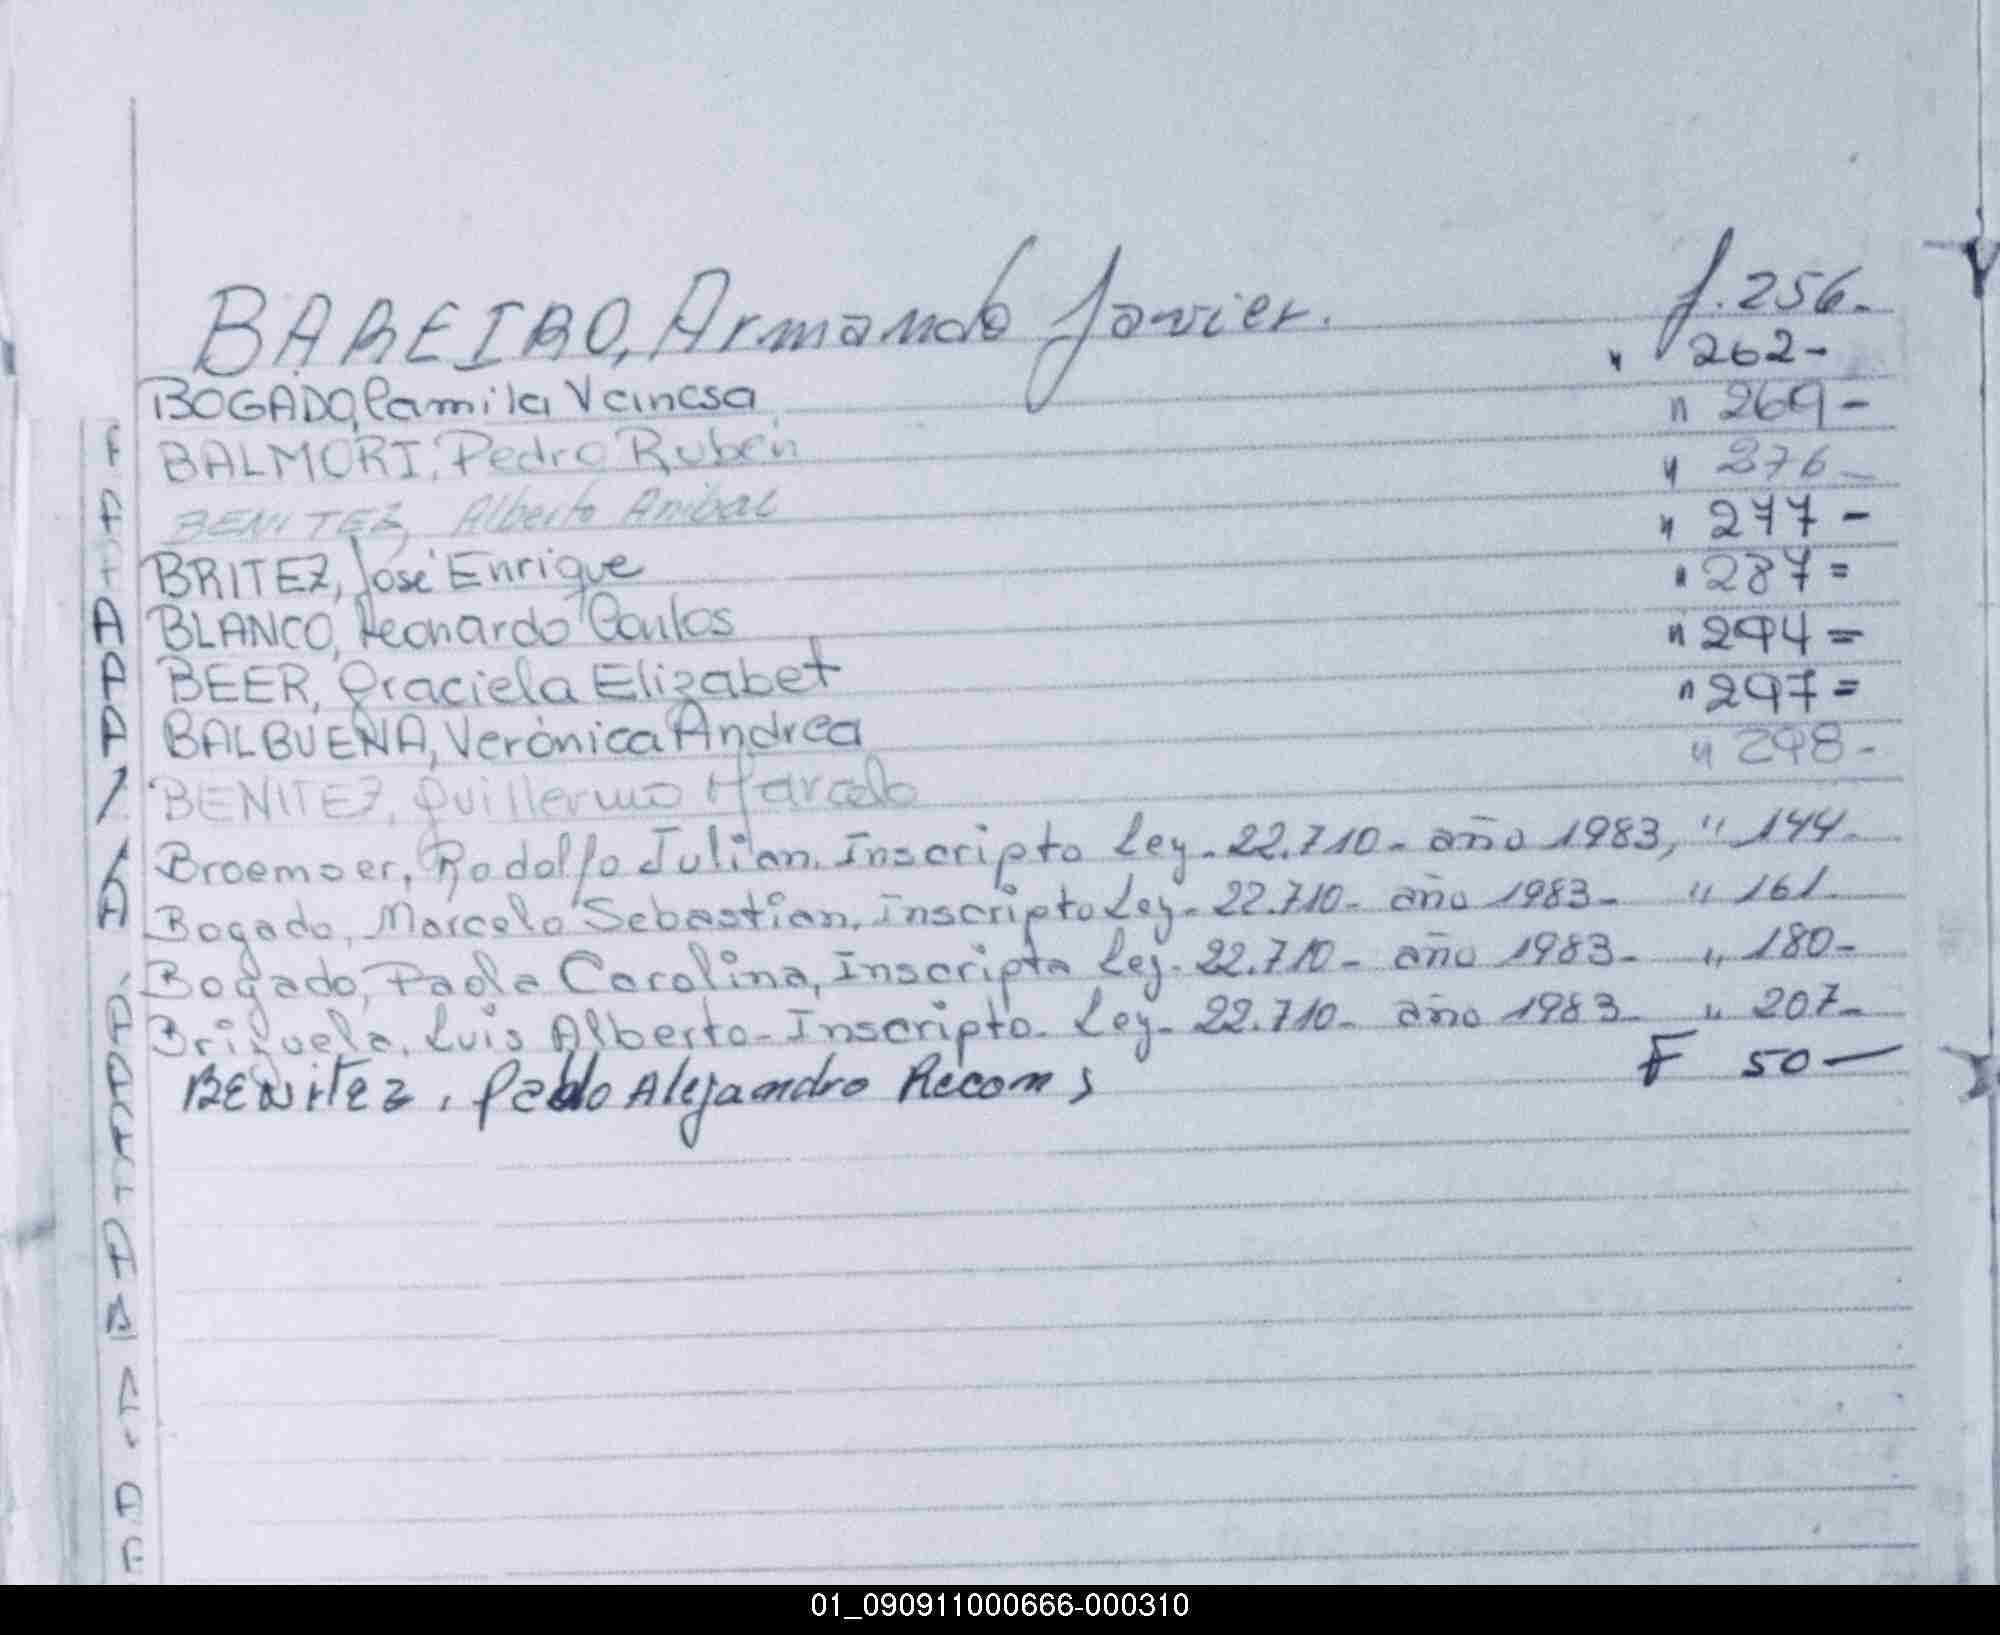 BAREIRO, Armando Javier. f. 256-
BOGADO, Camila Vanesa " 262-
BALMORI, Pedro Rubén " 269-
BENITEZ, Alberto Anibal " 276-
BRITEZ, José Enrique " 277-
BLANCO, Leonardo Carlos " 287=
BEER, Graciela Elizabet " 294=
BALBUENA, Verónica Andrea " 297=
BENITEZ, Guillermo Marcelo " 298-
Broemser, Rodolfo Julian. Inscripto Ley-22.710- año 1983, " 144-
Bogado, Marcelo Sebastian, Inscripto Ley-22.710- año 1983- " 161-
Bogado, Paola Carolina, Inscripta Ley-22.710- año 1983- " 180-
Brizuela, Luis Alberto-Inscripto-Ley-22.710- año 1983- " 207-
BENITEZ, Pablo Alejandro Recons F 50-
01_090911000666-000310